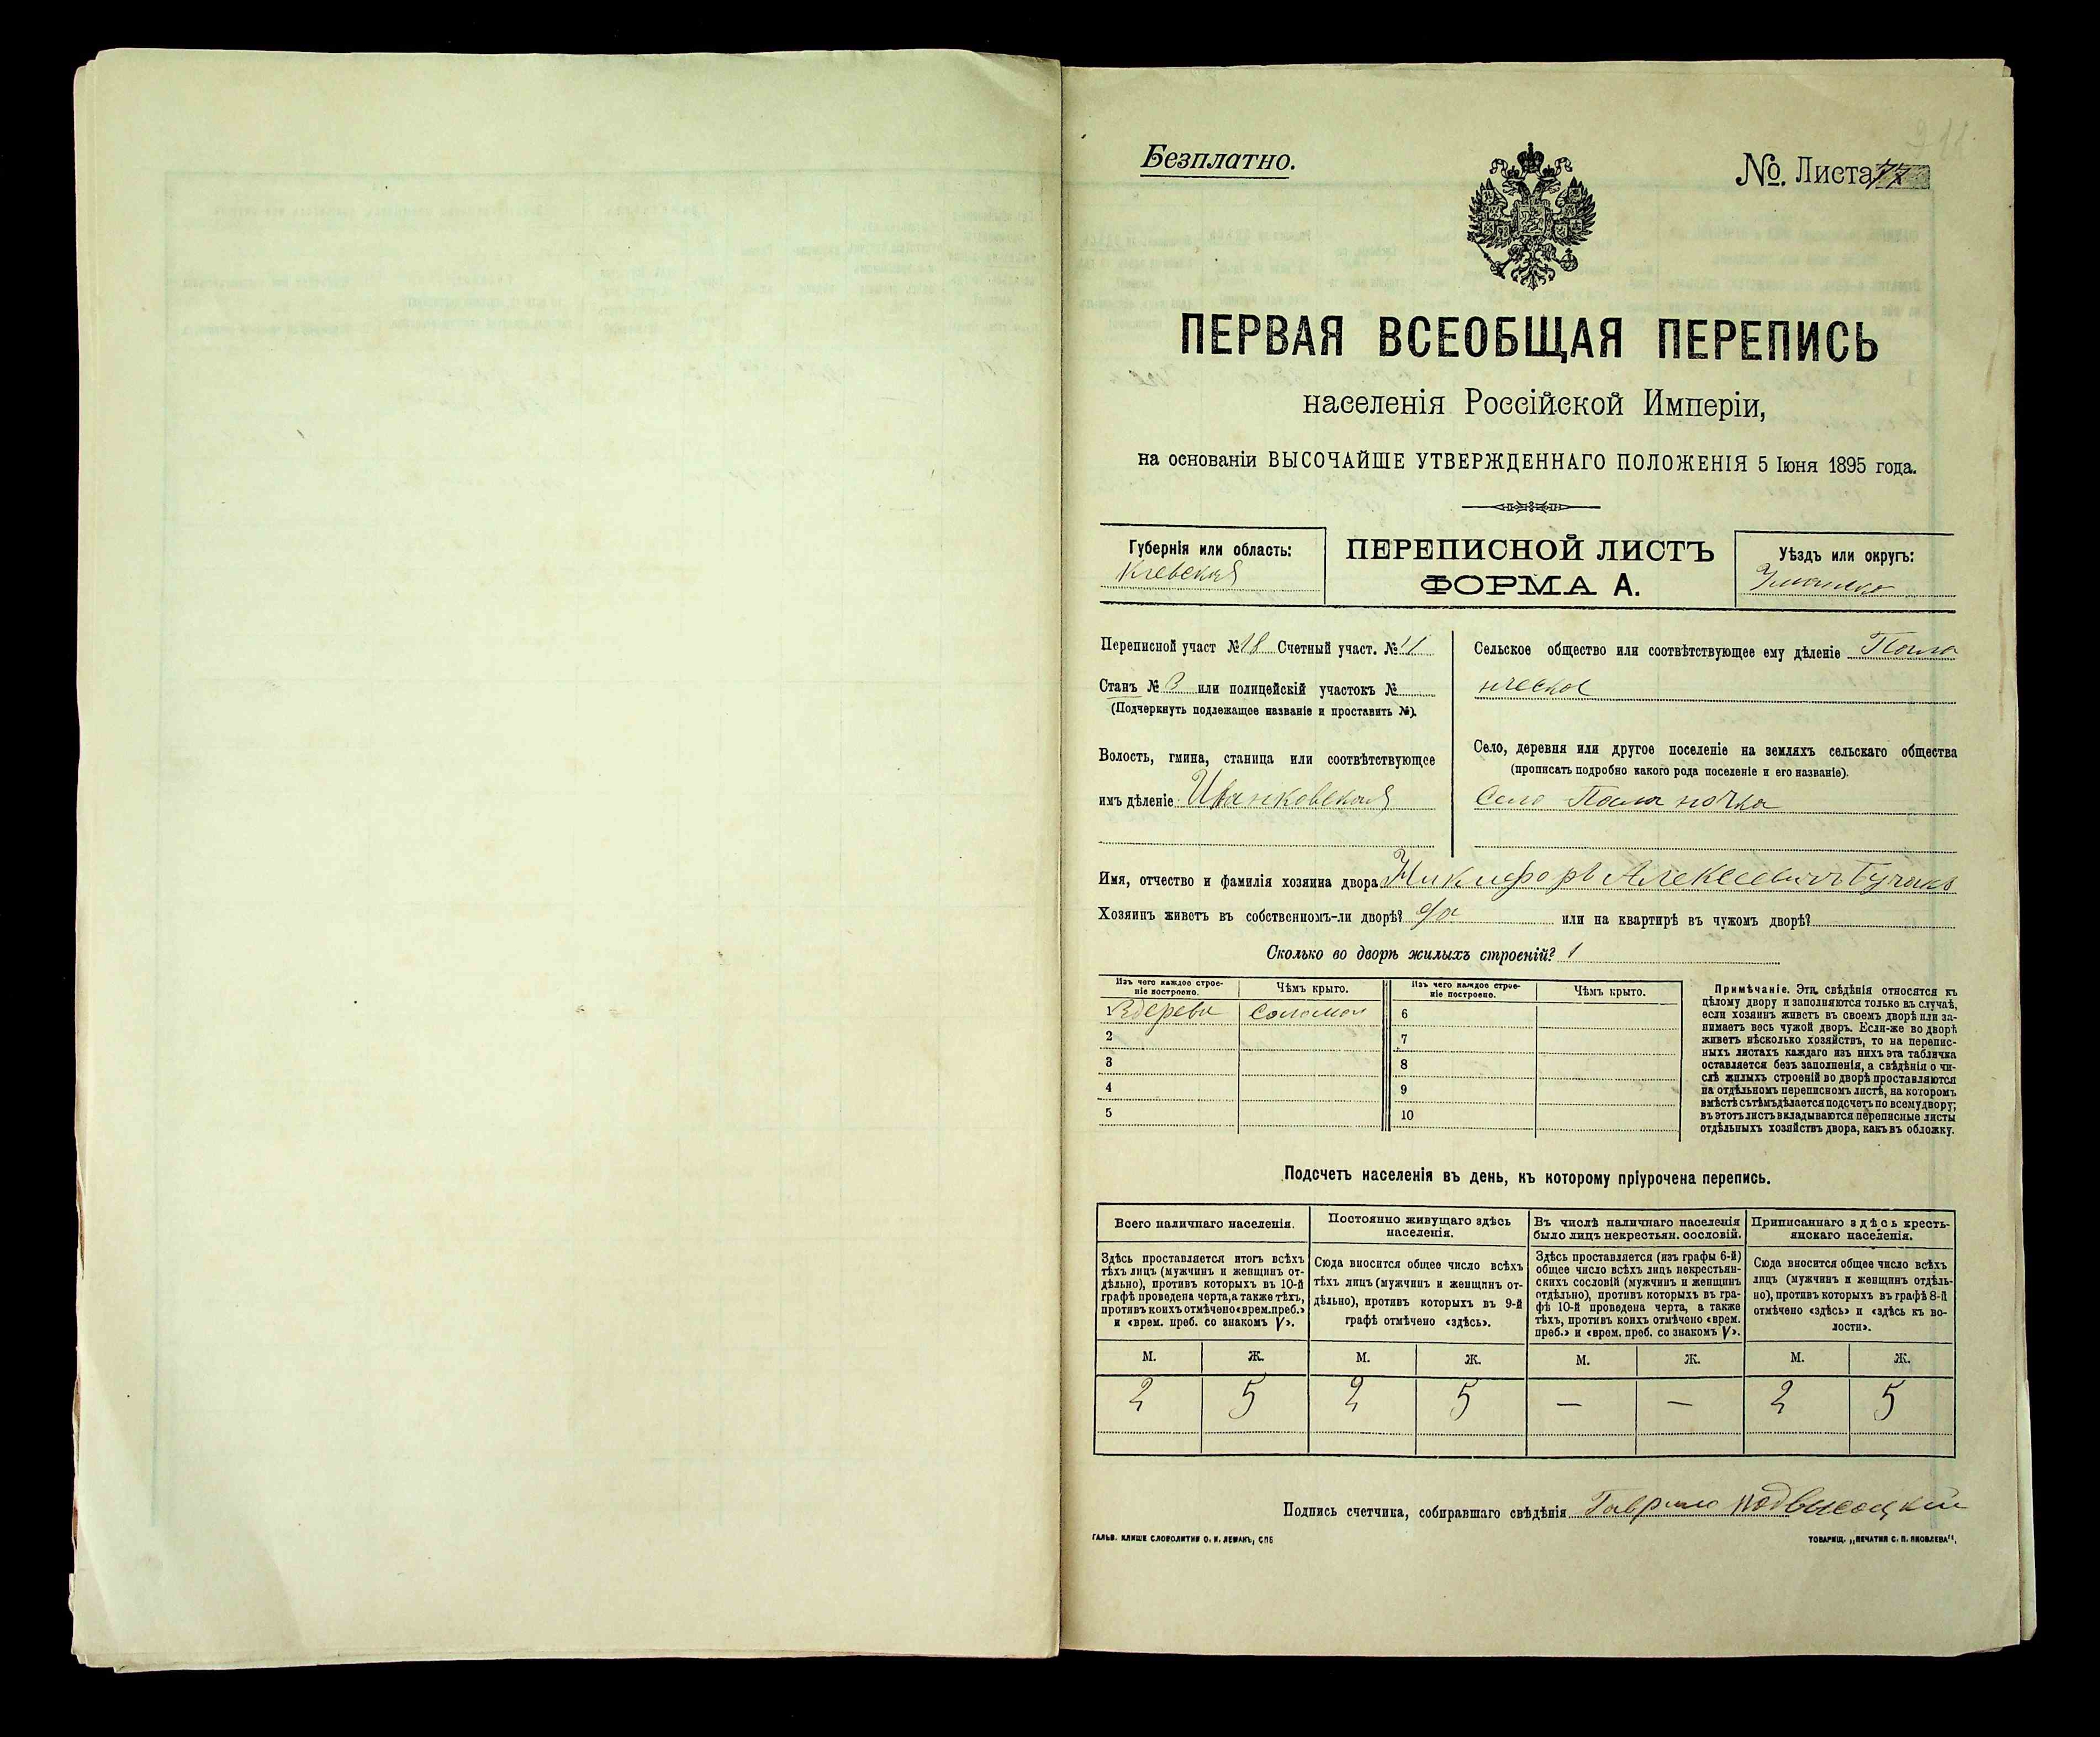 Безплатно.
№. Листа 77
ПЕРВАЯ ВСЕОБЩАЯ ПЕРЕПИСЬ
населенія Россійской Имперіи,
на основаніи ВЫСОЧАЙШЕ УТВЕРЖДЕННАГО ПОЛОЖЕНІЯ 5 Іюня 1895 года.
Губернія или область:
Кіевская
ПЕРЕПИСНОЙ ЛИСТЪ
ФОРМА А.
Уѣздъ или округъ:
Переписной участ №18 Счетный участ. №11
Станъ № 3 или полицейскій участокъ №
(Подчеркнуть подлежащее названіе и проставить №).
Волость, гмина, станица или соотвѣтствующее
имъ дѣленіе Иванковская
Сельское общество или соотвѣтствующее ему дѣленіе Пола
нческое
Село, деревня или другое поселеніе на земляхъ сельскаго общества
(прописать подробно какого рода поселеніе и его названіе).
Село Поланочка
Имя, отчество и фамилія хозяина двора Никифоръ Алексеевичъ
Хозяинъ живетъ въ собственномъ-ли дворѣ? да или на квартирѣ въ чужомъ дворѣ?
Сколько во дворѣ жилыхъ строеній? 1
Изъ чего каждое строе-
ніе построено.
Чѣмъ крыто.
Изъ чего каждое строе-
ніе построено.
Чѣмъ крыто.
1 Здерева Соломой 6
2 7
3 8
4 9
5 10
Примѣчаніе. Эти свѣдѣнія относятся къ
цѣлому двору и заполняются только въ случаѣ,
если хозяинъ живетъ въ своемъ дворѣ или за-
нимаетъ весь чужой дворъ. Если-же во дворѣ
живетъ нѣсколько хозяйствъ, то на перепис-
ныхъ листахъ каждаго изъ нихъ эта табличка
оставляется безъ заполненія, а свѣдѣнія о чи-
слѣ жилыхъ строеній во дворѣ проставляются
на отдѣльномъ переписномъ листѣ, на которомъ
вмѣстѣ съ тѣмъ дѣлается подсчетъ по всему двору;
въ этотъ листъ вкладываются переписные листы
отдѣльныхъ хозяйствъ двора, какъ въ обложку.
Подсчетъ населенія въ день, къ которому пріурочена перепись.
Всего наличнаго населенія.
Здѣсь проставляется итогъ всѣхъ
тѣхъ лицъ (мужчинъ и женщинъ от-
дѣльно), противъ которыхъ въ 10-й
графѣ проведена черта, а также тѣхъ,
противъ коихъ отмѣчено «врем. преб.»
и «врем. преб. со знакомъ V».
Постоянно живущаго здѣсь
населенія.
Сюда вносится общее число всѣхъ
тѣхъ лицъ (мужчинъ и женщинъ от-
дѣльно), противъ которыхъ въ 9-й
графѣ отмѣчено «здѣсь».
Въ числѣ наличнаго населенія
было лицъ некрестьян. сословій.
Здѣсь проставляется (изъ графы 6-й)
общее число всѣхъ лицъ некрестьян-
скихъ сословій (мужчинъ и женщинъ
отдѣльно), противъ которыхъ въ гра-
фѣ 10-й проведена черта, а также
тѣхъ, противъ коихъ отмѣчено «врем.
преб.» и «врем. преб. со знакомъ V».
Приписаннаго здѣсь кресть-
янскаго населенія.
Сюда вносится общее число всѣхъ
лицъ (мужчинъ и женщинъ отдѣль-
но), противъ которыхъ въ графѣ 8-й
отмѣчено «здѣсь» и «здѣсь къ во-
лости».
М. Ж. М. Ж. М. Ж. М. Ж.
2 5 2 5 — — 2 5
Подпись счетчика, собиравшаго свѣдѣнія Гаврило Подвысоцкій
ГАЛЬВ. КЛИШЕ СЛОВОЛИТНИ О. И. ЛЕМАНЪ, СПБ
ТОВАРИЩ. „ПЕЧАТНЯ С. П. ЯКОВЛЕВА".